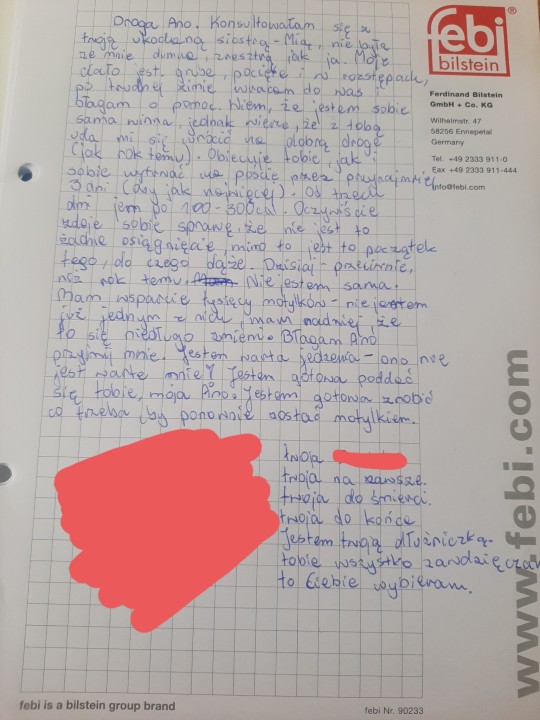 Droga Ano. Konsultowałam się z
twoją ukochaną siostrą - Mią, nie była
ze mnie dumna, zresztą jak ja. Moje
ciało jest grube, pocięte i w rozstępach,
po trudnej zimie wracam do was i
błagam o pomoc. Wiem, że jestem sobie
sama winna, jednak wierzę, że z tobą
uda mi się wrócić na dobrą drogę
(jak rok temu). Obiecuję tobie, jak i
sobie wytrwać na poście przez przynajmniej
3 dni (oby jak najwięcej). Od trzech
dni jem po 200-300cal. Oczywiście
zdaje sobie sprawę, że nie jest to
żadne osiągnięcie, mimo to jest to początek
tego, do czego dążę. Dzisiaj - przeciwnie,
niż rok temu. Nie jestem sama.
Mam wsparcie tysięcy motylków - nie jestem
już jednym z nich, mam nadzieję, że
to się niedługo zmieni. Błagam Ano
przyjmij mnie. Jestem warta jedzenia - ono nie
jest warte mnie! Jestem gotowa poddać
się tobie, moja Ano. Jestem gotowa zrobić
co trzeba, by ponownie zostać motylkiem.
twoja
twoja na zawsze.
twoja do śmierci.
twoja do końca
Jestem twoją dłużniczką.
tobie wszystko zawdzięczam
to Ciebie wybieram.
febi®
bilstein
Ferdinand Bilstein
GmbH + Co. KG
Wilhelmstr. 47
58256 Ennepetal
Germany
Tel. +49 2333 911-0
Fax +49 2333 911-444
info@febi.com
www.febi.com
febi is a bilstein group brand
febi Nr. 90233